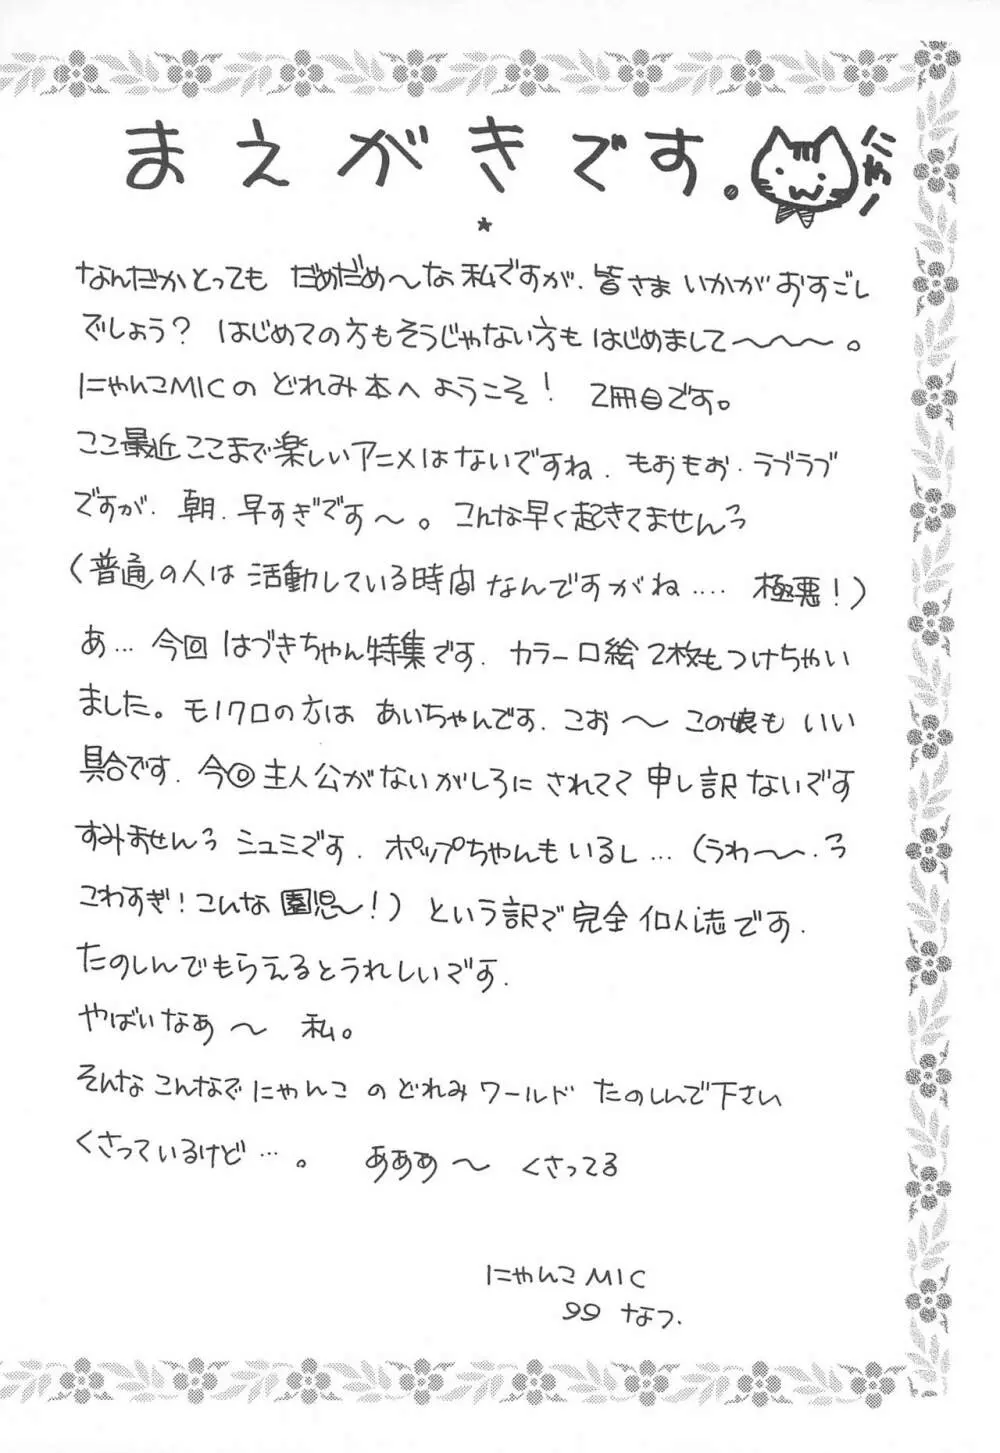 まえがきです。
にゃー
なんだかとっても だめだめ〜な私ですが、皆さま いかがおすごし
でしょう? はじめての方もそうじゃない方も はじめまして〜〜〜。
にゃんこMICの どれみ本へ ようこそ! 2冊目です。
ここ最近ここまで楽しいアニメはないですね. もおもお・ラブラブ
ですが、朝、早すぎです〜。こんな早く起きてませんっ
(普通の人は 活動している時間なんですがね‥‥ 極悪!)
あ… 今回 はづきちゃん特集です. カラー口絵2枚もつけちゃい
ました。モノクロの方は あいちゃんです. こお〜 この娘も いい
具合です. 今回主人公がないがしろに されてて 申し訳ないです
すみませんっ シュミです. ポップちゃんもいるし… (うわ〜.っ
こわすぎ!こんな 園児〜!) という訳で 完全 個人誌です.
たのしんでもらえるとうれしいです.
やばいなぁ〜 私。
そんなこんなで にゃんこ の どれみワールド たのしんで下さい
くさっているけど…。 あああ〜 くさってる
にゃんこ MIC
99 なつ.